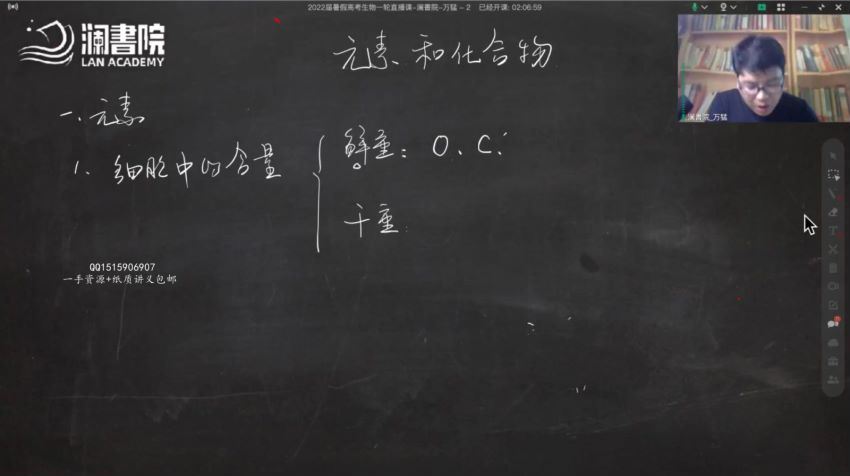 2022届暑假高考生物一轮直播课-澜書院-万猛 – 2 已经开课: 02:06:59
澜書院
LAN ACADEMY
元素和化合物
澜書院_万猛
一、元素
1. 细胞中的含量
鲜重: O、C、
干重
QQ1515906907
一手资源+纸质讲义包邮